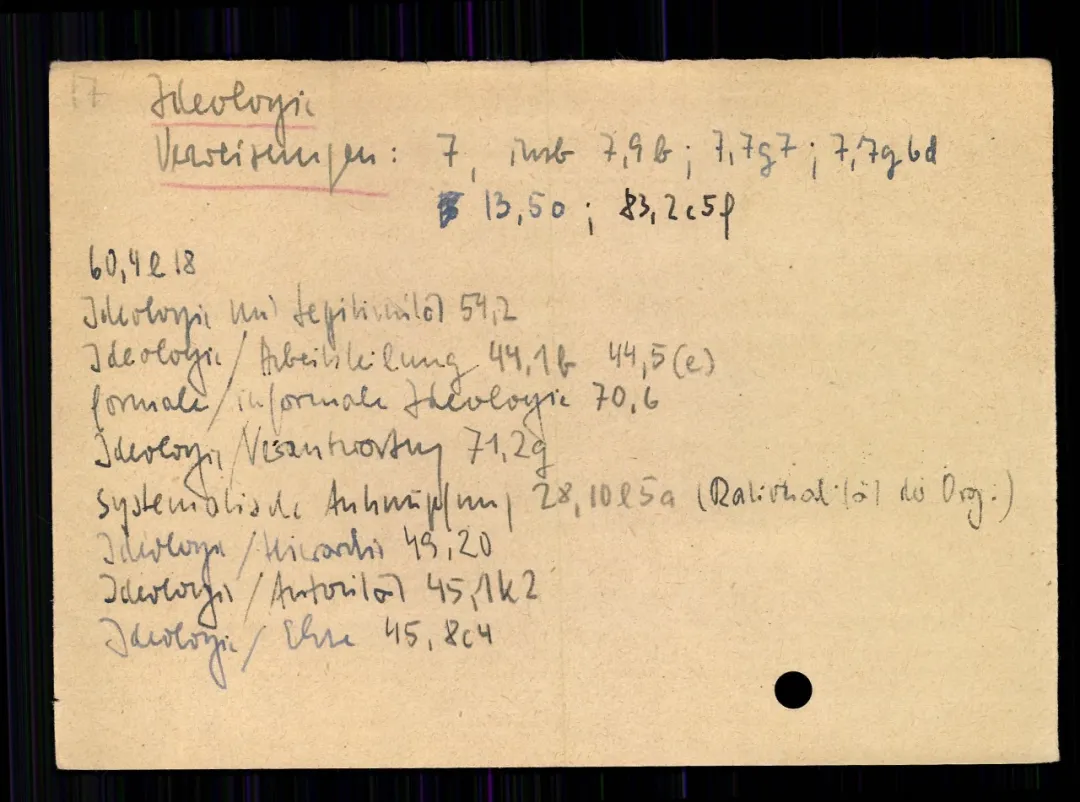 17 Ideologie
Verweisungen: 7, insb 7,9b; 7,7g7; 7,7g6d
13,5o; 83,2c5f
60,4l18
Ideologie und Legitimität 59,2
Ideologie/Arbeitsteilung 44,1b 44,5(e)
formale/informale Ideologie 70,6
Ideologie/Verantwortung 71,2g
Systematische Anknüpfung 28,10l5a (Rationalität der Org.)
Ideologie/Hierarchie 49,20
Ideologie/Autorität 45,1k2
Ideologie/Ehre 45,8c4